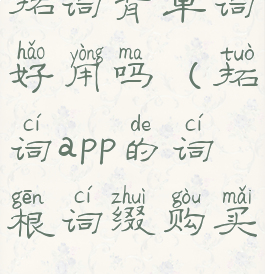 拓词背单词
hǎo yòng ma tuò
好用吗（拓
cí de cí
词app的词
gēn cí zhuì gòu mǎi
根词缀购买